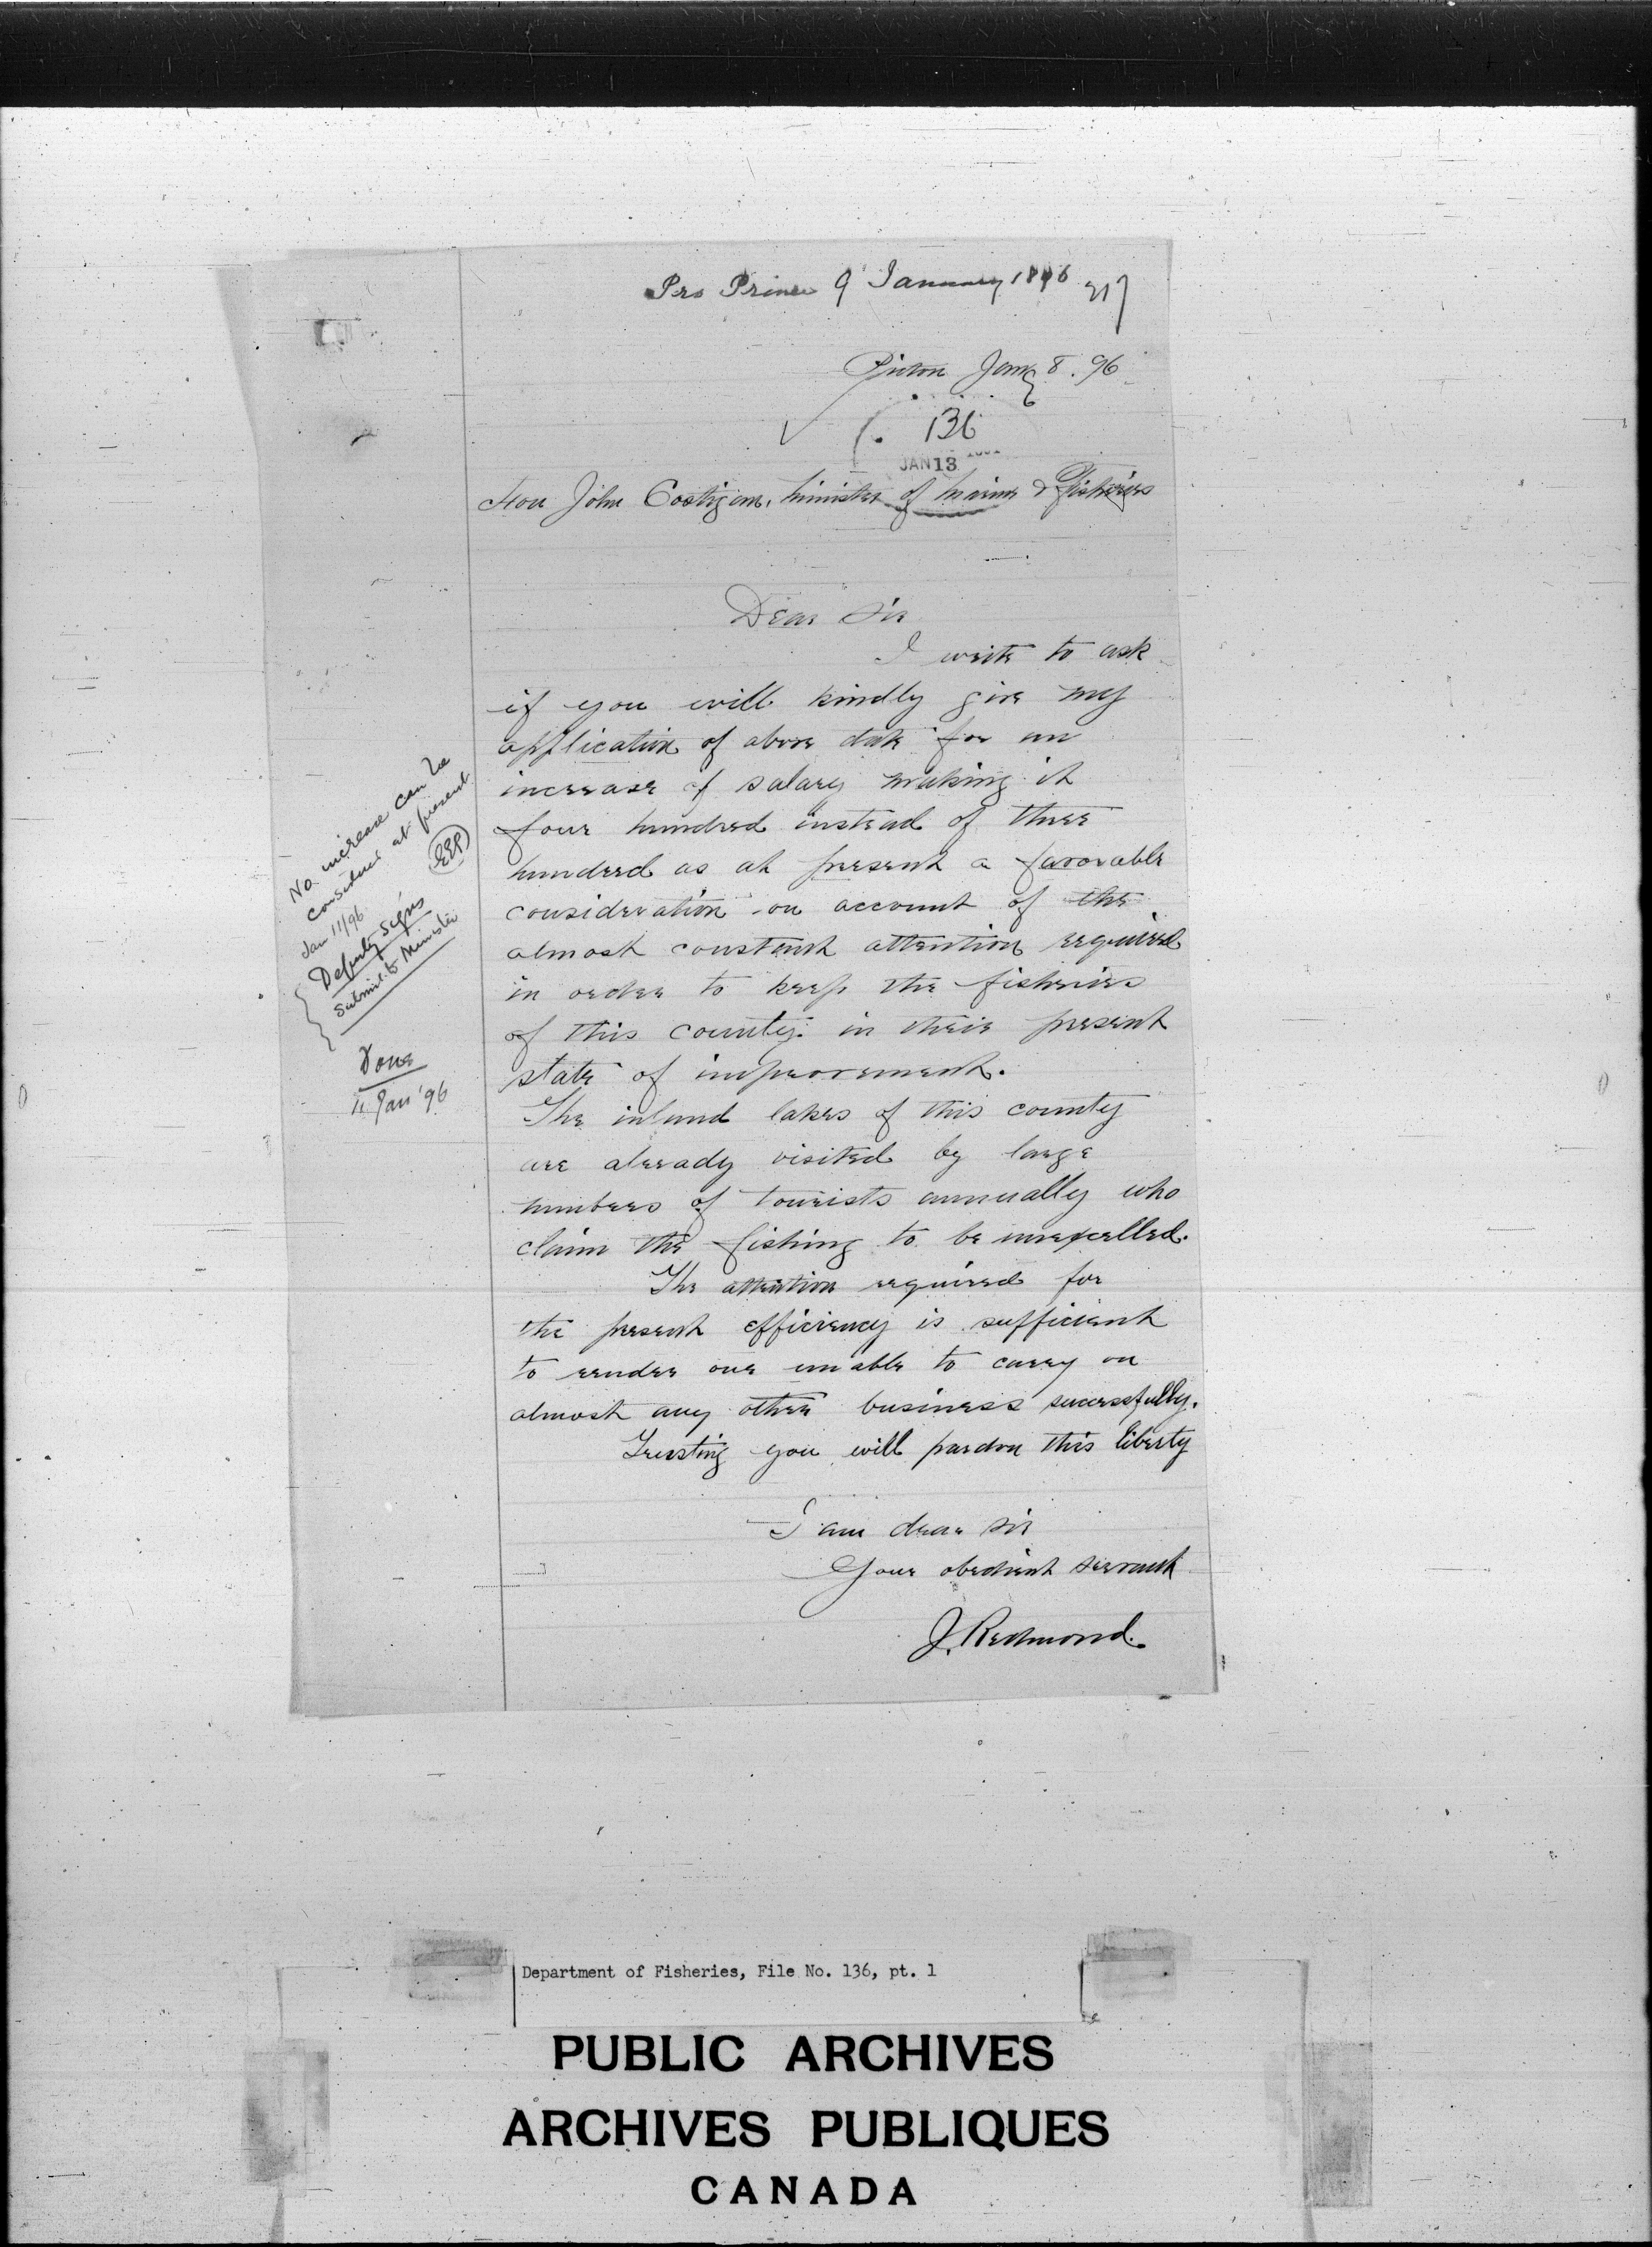 Pro Prince 9 January 1896
Picton Jany 8. 96
136
JAN 13
Hon John Costigan, Minister of Marine & Fisheries
Dear Sir
I write to ask
if you will kindly give my
application of above date for an
increase of salary making it
four hundred instead of three
hundred as at present a favorable
consideration on account of the
almost constant attention required
in order to keep the fisheries
of this county in their present
state of improvement.
The inland lakes of this county
are already visited by large
numbers of tourists annually who
claim the fishing to be unexcelled.
The attention required for
the present efficiency is sufficient
to render one unable to carry on
almost any other business successfully.
Trusting you will pardon this liberty
I am dear Sir
Your obedient servant
J. Redmond.
No increase can be
considered at present
EEP
Jan 11/96
Deputy signs
Submit to Minister
Done
11 Jan '96
Department of Fisheries, File No. 136, pt. 1
PUBLIC ARCHIVES
ARCHIVES PUBLIQUES
CANADA